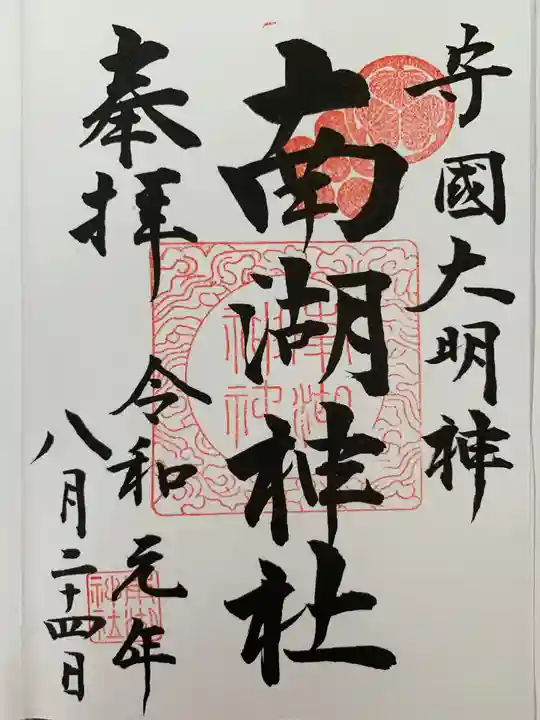 守國大明神
南湖神社
奉拝
令和元年
八月二十四日
南湖
神社
南湖
神社